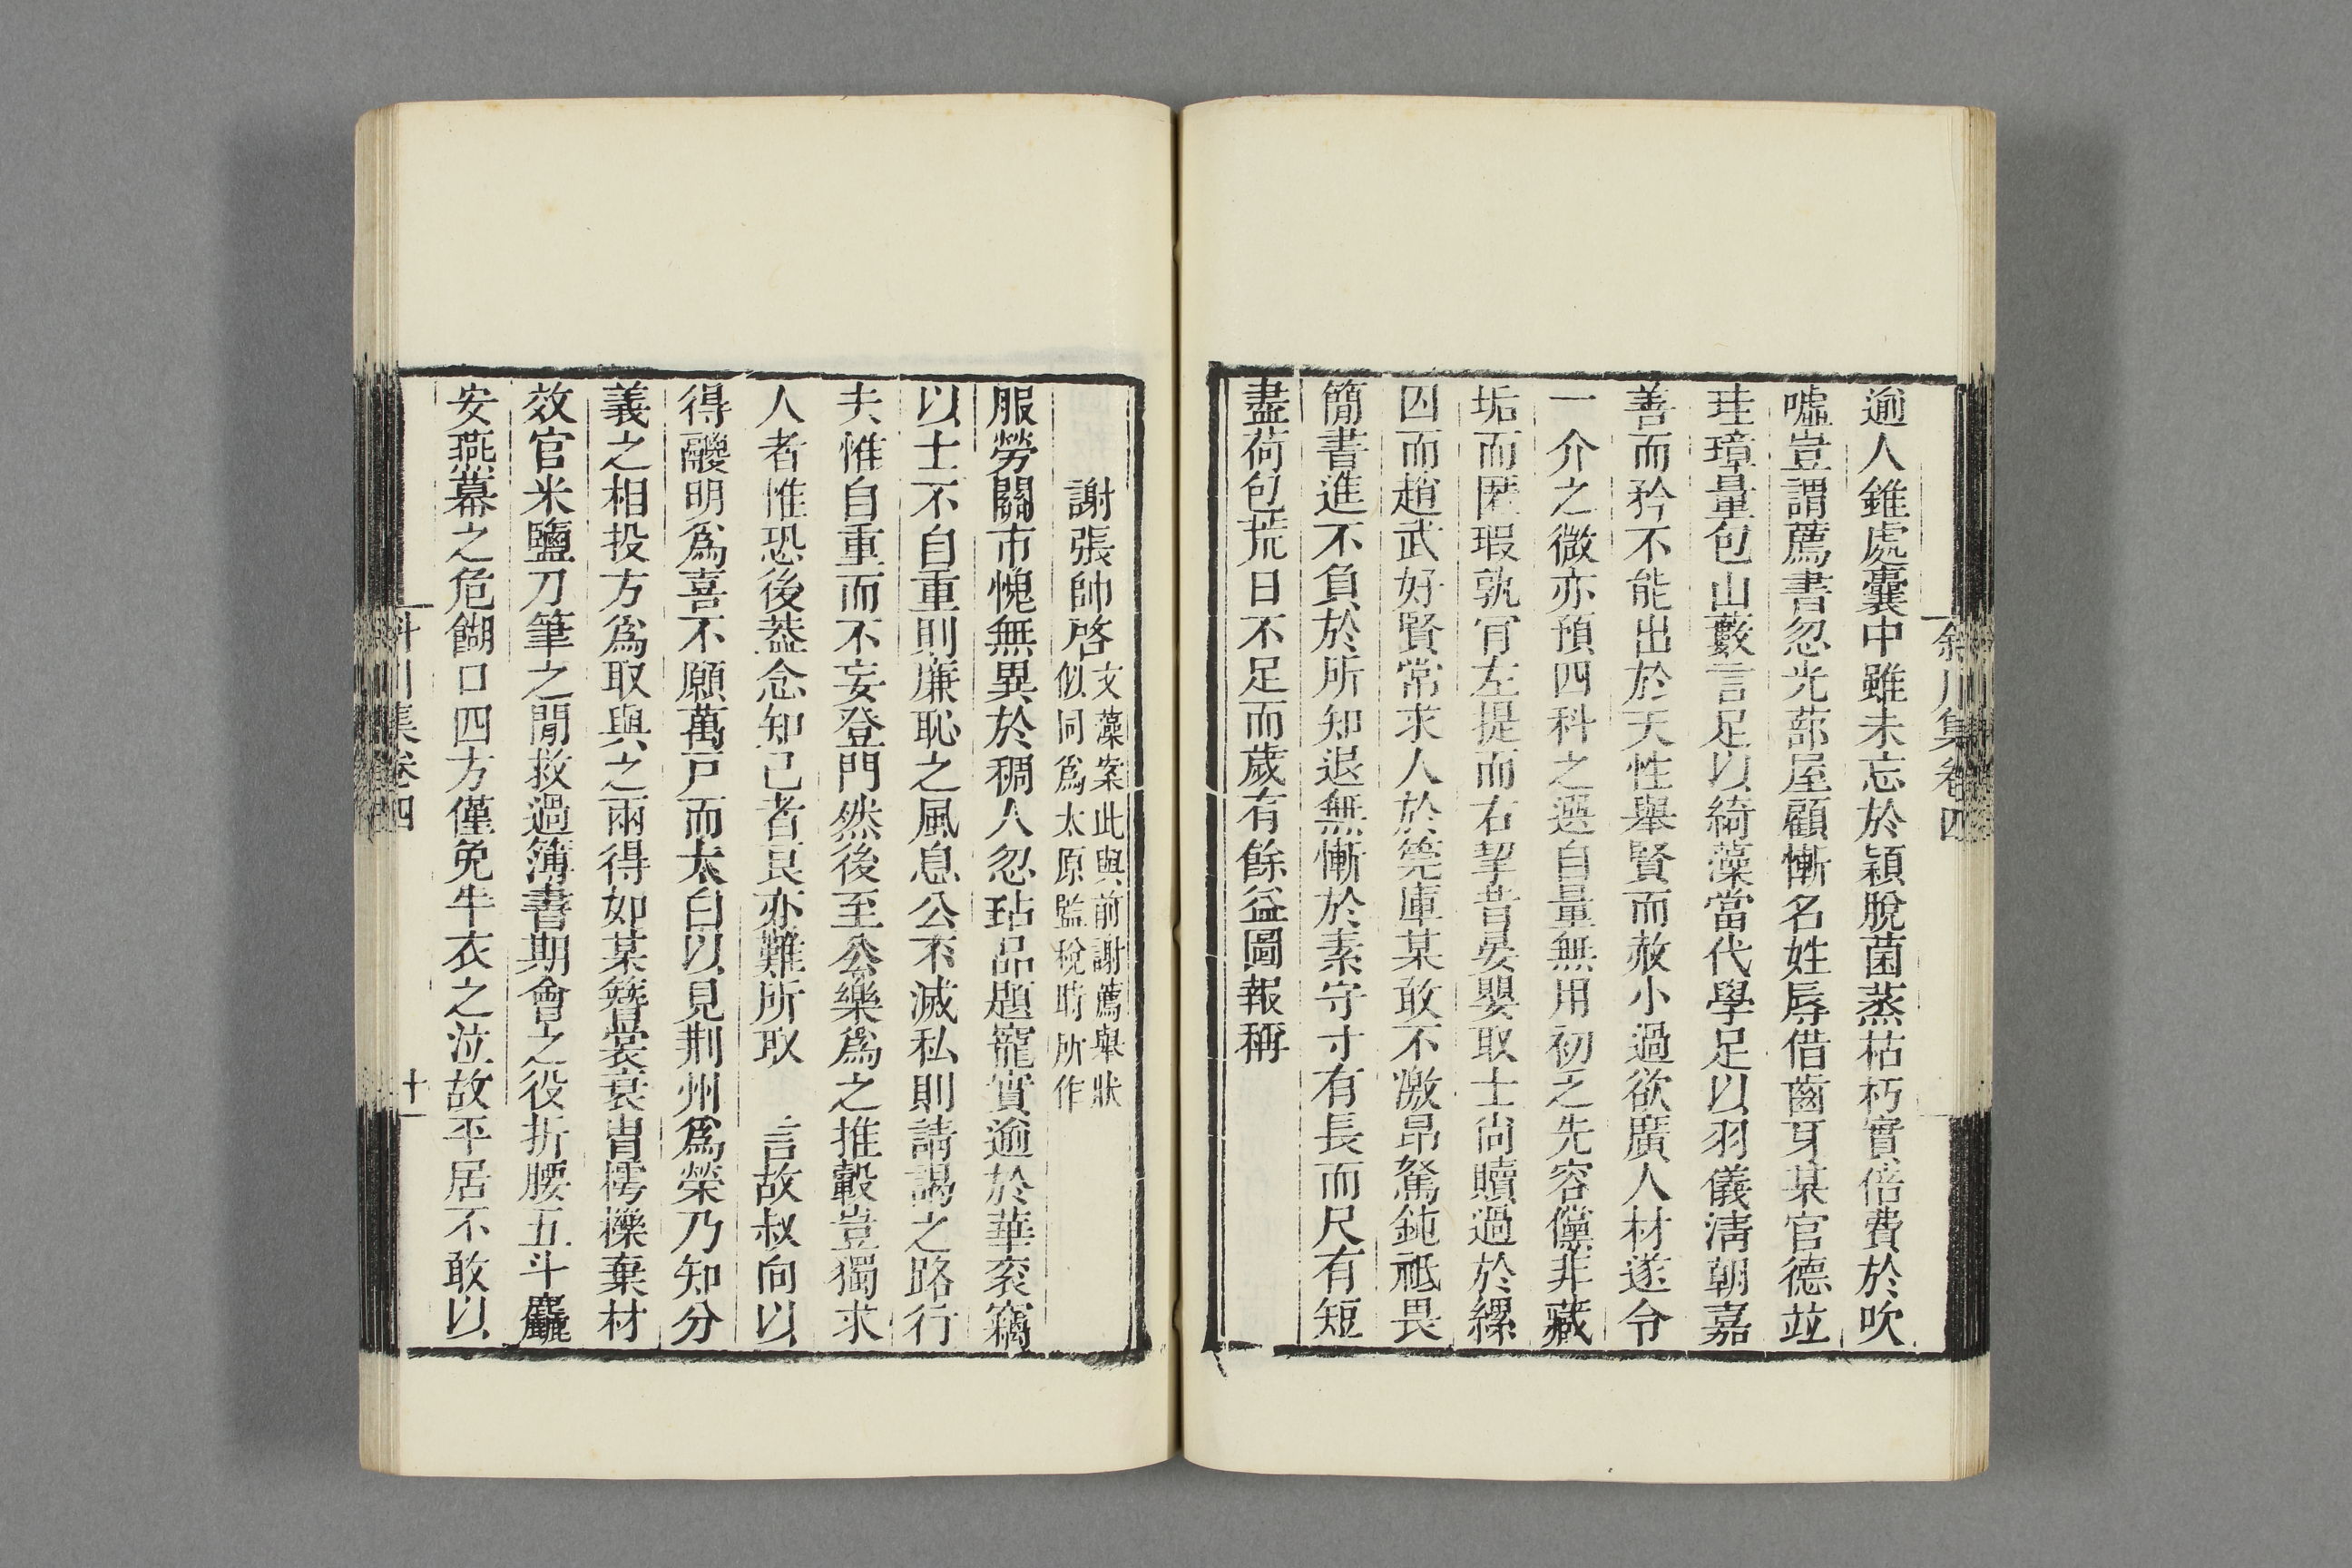 逾人錐處囊中雖未忘於穎脫菌蒸枯朽實倍費於吹
噓豈謂薦書忽光蔀屋顧慚名姓辱借齒牙某官德竝
珪璋量包山藪言足以綺藻當代學足以羽儀淸朝嘉
善而矜不能出於天性舉賢而赦小過欲廣人材遂令
一介之微亦預四科之選自量無用初乏先容儻非藏
垢而匿瑕孰肎左提而右挈昔晏嬰取士尙贖過於縲
囚而趙武好賢常求人於筦庫某敢不激昂駑鈍祗畏
簡書進不負於所知退無慚於素守寸有長而尺有短
盡荷包荒日不足而歲有餘益圖報稱
斜川集卷四
謝張帥啓
文藻案此與前謝薦舉狀
似同爲太原監稅時所作
服勞關市愧無異於稠人忽玷品題寵實逾於華衮竊
以士不自重則廉恥之風息公不滅私則請謁之路行
夫惟自重而不妄登門然後至公樂爲之推轂豈獨求
人者惟恐後葢念知己者良亦難所取 言故叔向以
得鬷明爲喜不願萬戸而太白以見荆州爲榮乃知分
義之相投方爲取與之兩得如某簪裳衰胄樗櫟棄材
效官米鹽刀筆之閒救過簿書期會之役折腰五斗麤
安燕幕之危餬口四方僅免牛衣之泣故平居不敢以
斜川集卷四
十一